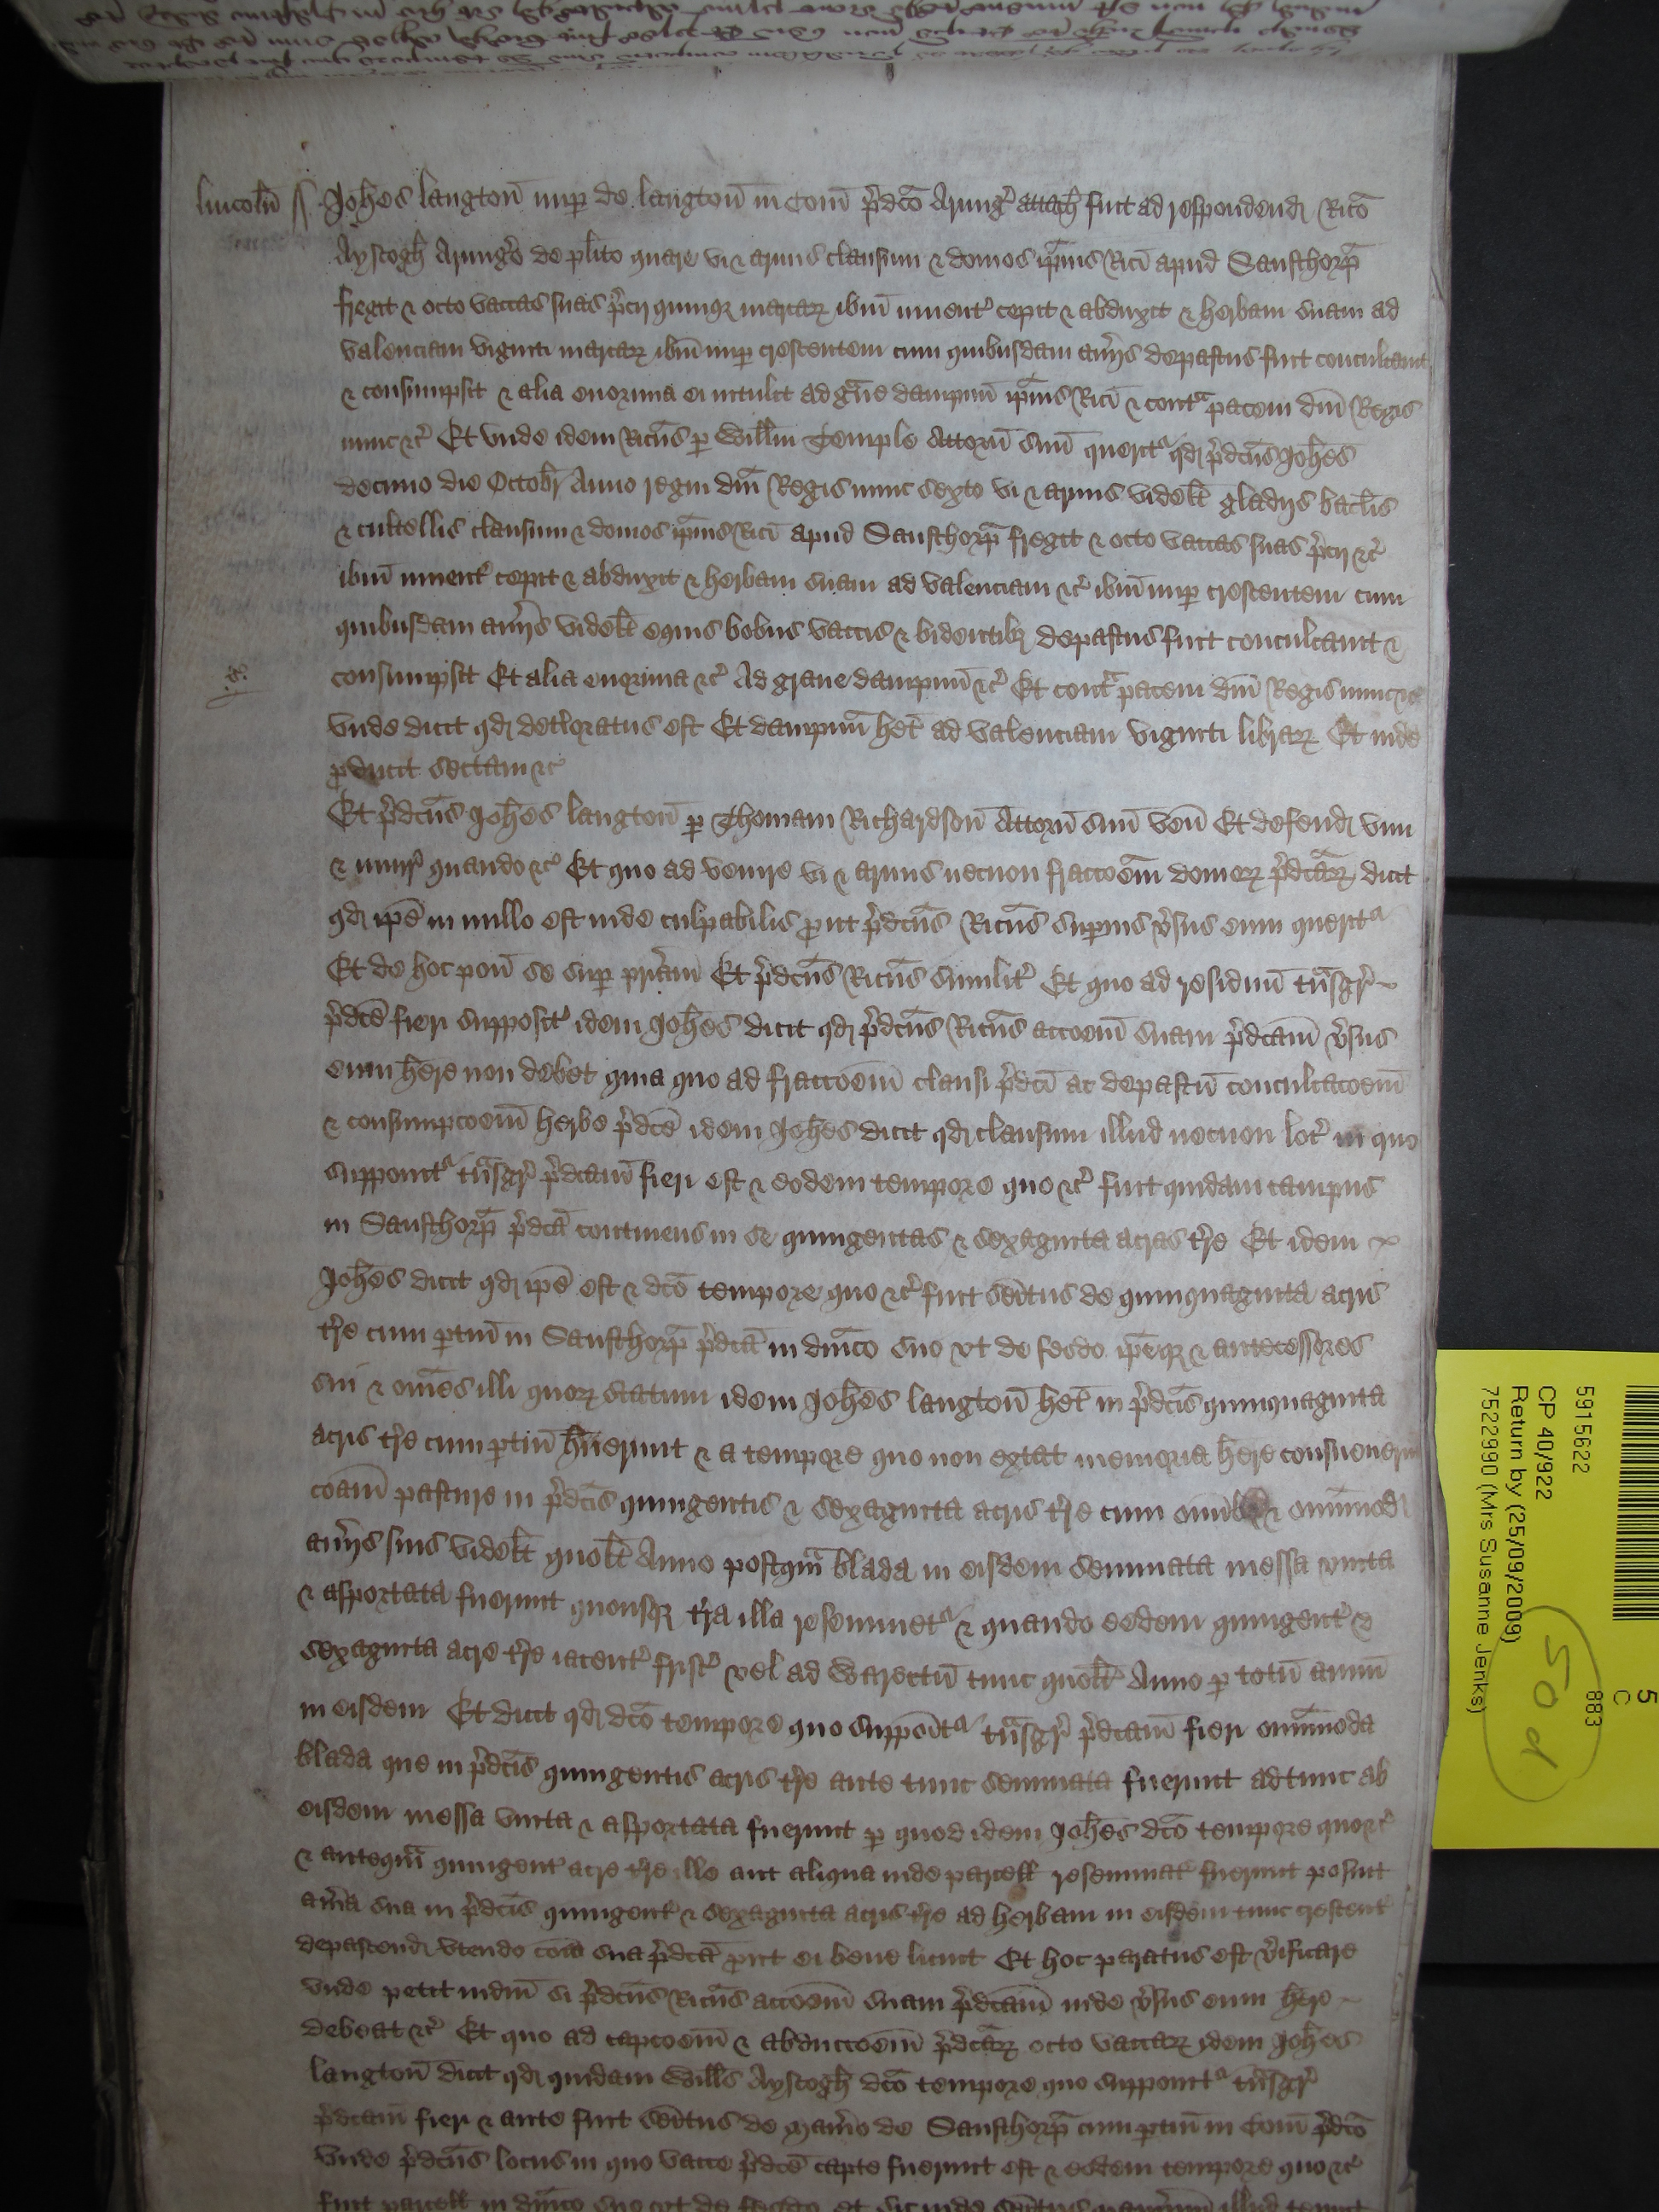 lincoln ss Joh̄es langton̄ nup de langton̄ in Com̄ p̄dc̄o Armig' attach' fuit ad respondend' Ric̄o
Ayscogh Armig'o de pl̄ito quare vi & armis clausum & domos ip̄ius Ric̄i apud Sausthorp̄
fregit & octo vaccas suas p̄cij quinq' marcar' ibm̄ inuent' cepit & abduxit & herbam suam ad
valenciam viginti marcar' ibm̄ nup crescentem cum quibusdam aūijs depastus fuit conculcauit
& consumpsit & alia enormia ei intulit ad g̃ue dampnū ip̄ius Ric̄i & cont̃ pacem dn̄i Regis
nunc &c' Et vnde idem Ric̄us p Will̄m Temple Attorn̄ suū querit' qd' p̄dc̄us Joh̄es
decimo die Octobr' Anno regni dn̄i Regis nunc sexto vi & armis videlt' gladijs bacl̄is
& cultellis clausum & domos ip̄ius Ric̄i apud Sausthorp̄ fregit & octo vaccas suas p̄cij &c'
ibm̄ inuent' cepit & abduxit & herbam suam ad valenciam &c' ibm̄ nup crescentem cum
quibusdam aūijs videlt' equis bobus vaccis & bidentib' depastus fuit conculcauit &
consumpsit Et alia enormia &c' Ad graue dampnū &c' Et cont̃ pacem dn̄i Regis nunc &c'
vnde dicit qd' det'ioratus est Et dampnū het' ad valenciam viginti librar' Et inde
pducit sectam &c'
Et p̄dc̄us Joh̄es langton̄ p Thomam Richardson̄ Attorn̄ suū ven̄ Et defend' vim
& iniur' quando &c' Et quo ad venire vi & armis necnon fraccōem domor' p̄dc̄ar' dicit
qd' ip̄e in nullo est inde culpabilis p̱ut p̄dc̄us Ric̄us supius v̄sus eum querit'
Et de hoc pon̄ se sup pr̄iam Et p̄dc̄us Ric̄us similit' Et quo ad residuū tn̄sgr'
p̄dc̄e fieri supposit' idem Joh̄es dicit qd' p̄dc̄us Ric̄us acc̄oem suam p̄dc̄am v̄sus
eum h̄ere non debet quia quo ad fracc̄oem clausi p̄dc̄i ac depastū conculcac̄oem
& consumpc̄oem herbe p̄dc̄e idem Joh̄es dicit qd' clausum illud necnon loc' in quo
supponit' tn̄sgr' p̄dc̄am fieri est & eodem tempore quo &c' fuit quidam campus
in Sausthorp̄ p̄dc̄a continens in se quingentas & sexaginta acras t're Et idem
Joh̄es dicit qd' ip̄e est & dc̄o tempore quo &c' fuit sēitus de quinquaginta acris
t're cum ptin̄ in Sausthorp̄ p̄dc̄a in dn̄ico suo vt de feodo ip̄eq' & antecessores
sui & om̄es illi quor' statum idem Joh̄es langton̄ het' in p̄dc̄is quinquaginta
acris t're cum ptin̄ h̄uerunt & a tempore quo non extat memoria h̄ere consueuerunt
cōiam pasture in p̄dc̄is quingentis & sexaginta acris t're cum omīb' & om̄imod'
aūijs suis videlt' quolt' Anno postqm̄ blada in eisdem seminata messa vincta
& asportata fuerunt quousq' t'ra illa reseminet' & quando eedem quingent' &
sexaginta acre t're iacent' frisc' vel ad Warectū tunc quolt' Anno p totū annū
in eisdem Et dicit qd' dc̄o tempore quo suppōit' tn̄sgr' p̄dc̄am fieri om̄imoda
blada que in p̄dc̄is quingentis acris t're ante tunc seminata fuerunt adtunc ab
eisdem messa vincta & asportata fuerunt p quod idem Joh̄es dc̄o tempore quo &c'
& anteqm̄ quingent' acre t're ille aut aliqua inde parcell' reseminat' fuerunt posuit
aūia sua in p̄dc̄is quingent' & sexaginta acris t're ad herbam in eisdem tunc crescent'
depascend' vtendo cōia sua p̄dc̄a p̱ut ei bene licuit Et hoc paratus est v̄ificare
vnde petit iudm̄ si p̄dc̄us Ric̄us acc̄oem suam p̄dc̄am inde v̄sus eum h̄ere
debeat &c' Et quo ad capc̄oem & abducc̄oem p̄dc̄ar' octo vaccar' idem Joh̄es
langton̄ dicit qd' quidam Will̄s Ayscogh dc̄o tempore quo supponit' tn̄sgr'
p̄dc̄am fieri & ante fuit sēitus de Man̄io de Sausthorp̄ cum ptin̄ in Com̄ p̄dc̄o
vnde p̄dc̄us locus in quo vacce p̄dc̄e capte fuerunt est & eodem tempore quo &c'
fuit parcell' in dn̄ico suo vt de feodo et sic inde
5915622
CP 40/922
Return by (25/09/2009)
7522990 (Mrs Susanne Jenks)
883
C
5
50 d